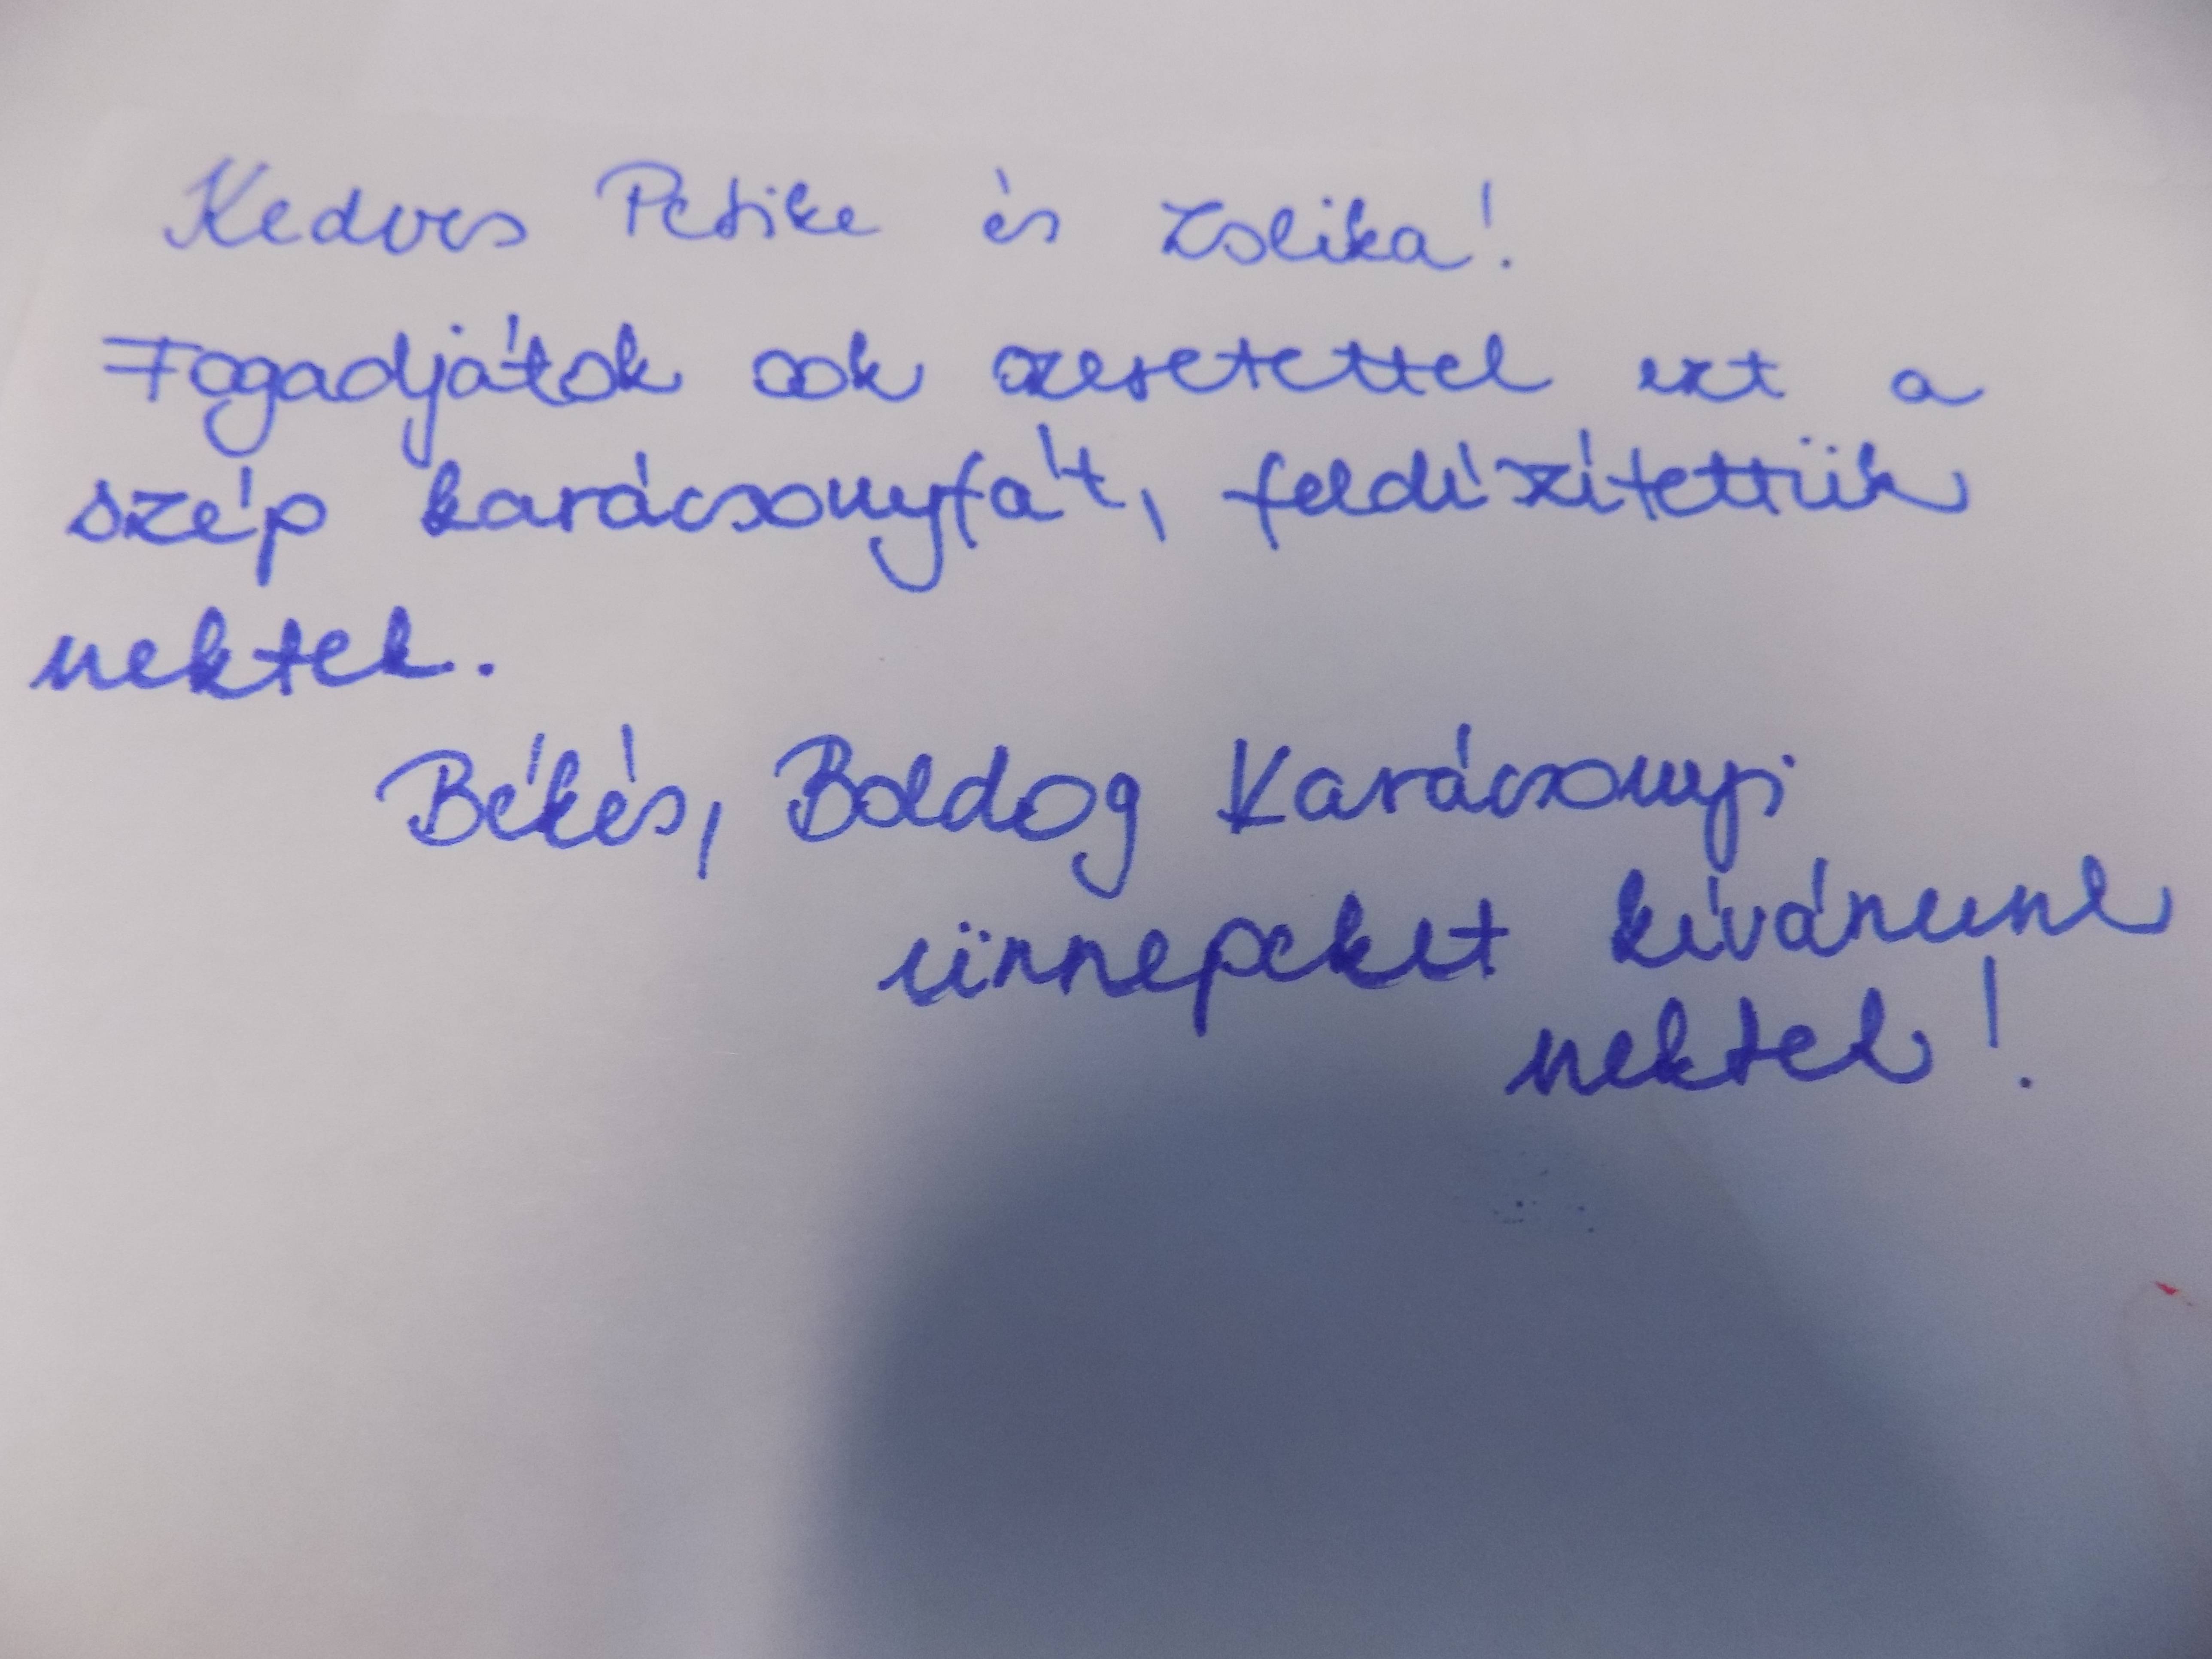 Kedves Petike és Zsolika!
Fogadjátok sok szeretettel ezt a
szép karácsonyfát, feldíszítettük
nektek.
Békés, Boldog Karácsonyi
ünnepeket kívánunk
nektek!